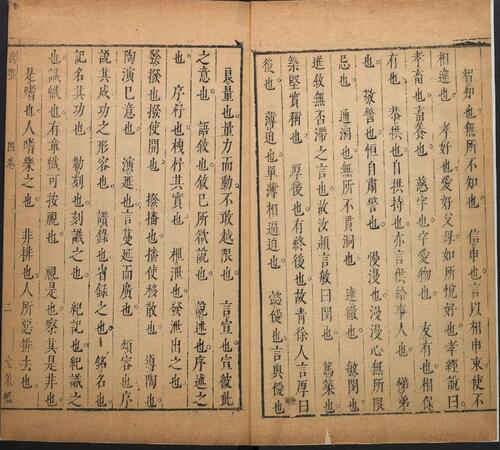 智知也無所不知也　信申也言以相申束使不
相違也　孝好也愛好父母如所悅好也孝經說曰
孝畜也畜養也　慈字也字愛物也　友有也相保
有也　恭拱也自拱持也亦言供給事人也　悌弟
也　敬警也恒自肅警也　慢漫也漫漫心無所限
忌也　通洞也無所不貫洞也　達徹也　敏閔也
進敘無否滯之言也故汝潁言敏曰閔也　篤築也
築堅實稱也　厚後也有終後也故青徐人言厚曰
後也　薄迫也單薄相逼迫也　懿僾也言奧僾也
良量也量力而動不敢越限也　言宣也宣彼此
之意也　語敘也敘已所欲說也　說述也序述之
也　序杼也拽杼其實也　枻泄也發泄出之也
發撥也撥使開也　撥播也播使移散也　導陶也
陶演已意也　演延也言蔓延而廣也　頌容也序
說其成功之形容也　讚錄也省錄之也　銘名也
記名其功也　勒刻也刻識之也　紀記也紀識之
也識幟也有章幟可按視也　視是也察其是非也
是嗜也人嗜樂之也　非排也人所惡排去也
逸雅　四卷　二　堂策檻